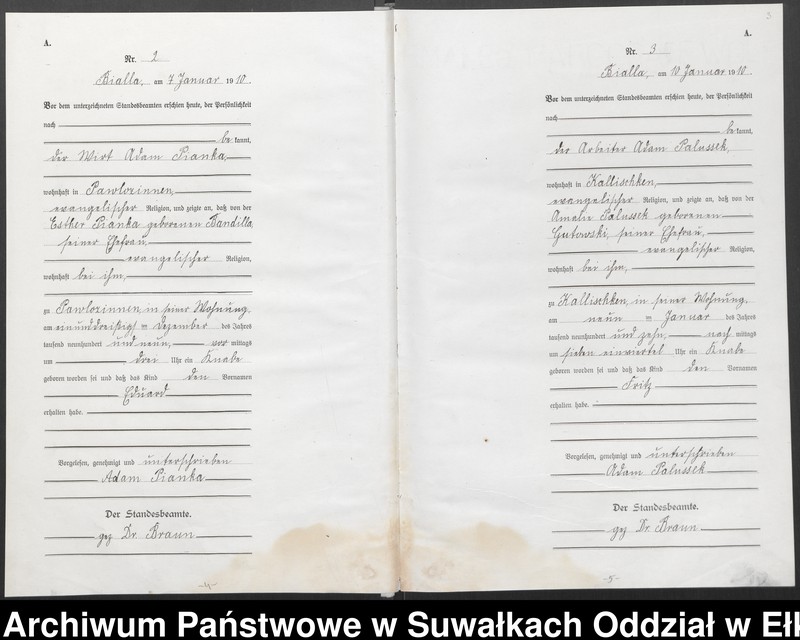 A.
Nr. 2
Bialla, am 7 Januar 1910.
Vor dem unterzeichneten Standesbeamten erschien heute, der Persönlichkeit
nach
be kannt,
der Wirt Adam Pianka
wohnhaft in Pawlozinnen,
evangelischer Religion, und zeigte an, daß von der
Esther Pianka geborenen Bandilla,
seiner Ehefrau,
evangelischer Religion,
wohnhaft bei ihm,
zu Pawlozinnen, in seiner Wohnung,
am einunddreißigst = Dezember des Jahres
tausend neunhundert und neun, vor mittags
um drei Uhr ein Knabe
geboren worden sei und daß das Kind den Vornamen
Eduard
erhalten habe.
Vorgelesen, genehmigt und unterschrieben
Adam Pianka
Der Standesbeamte.
gez Dr. Braun
-4-
3
A.
Nr. 3
Bialla, am 10 Januar 1910.
Vor dem unterzeichneten Standesbeamten erschien heute, der Persönlichkeit
nach
be kannt,
der Arbeiter Adam Palussek,
wohnhaft in Kallischken,
evangelischer Religion, und zeigte an, daß von der
Amalie Palussek geborenen
Gutowski, seiner Ehefrau,
evangelischer Religion,
wohnhaft bei ihm,
zu Kallischken, in seiner Wohnung,
am neun = Januar des Jahres
tausend neunhundert und zehn, nach mittags
um sieben einviertel Uhr ein Knabe
geboren worden sei und daß das Kind den Vornamen
Fritz
erhalten habe.
Vorgelesen, genehmigt und unterschrieben
Adam Palussek
Der Standesbeamte.
gez Dr. Braun
-5-
Archiwum Państwowe w Suwałkach Oddział w Eł